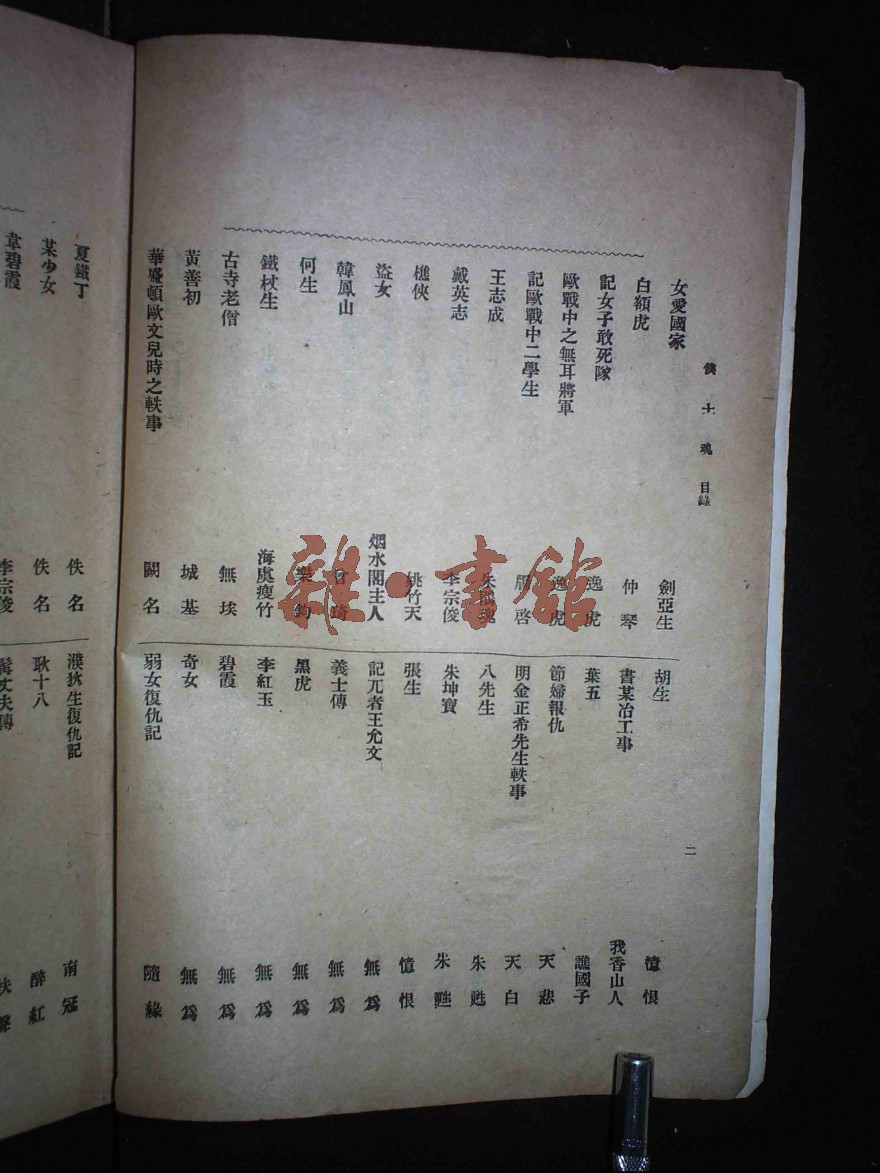 俠士魂 目錄
二
女愛國家 劍亞生
白額虎 仲琴
記女子敢死隊 逸虎
歐戰中之無耳將軍 逸虎
記歐戰中二學生 啓
王志成 朱 魂
戴英志 李宗俊
樵俠 姚竹天
盜女 烟水閣主人
韓鳳山 琦
何生 樂鈞
鐵杖生 海虞瘦竹
古寺老僧 無埃
黃善初 城基
華盛頓歐文兒時之軼事 闕名
夏鐵丁 佚名
某少女 佚名
韋碧霞 李宗俊
胡生 憶恨
書某冶工事 我香山人
葉五 譙國子
節婦報仇 天悲
明金正希先生軼事 天白
八先生 朱甦
朱坤寶 朱甦
張生 憶恨
記兀者王允文 無爲
義士傳 無爲
黑虎 無爲
李紅玉 無爲
碧霞 無爲
奇女 無爲
弱女復仇記 隨緣
濮狄生復仇記 南冠
耿十八 醉紅
丈夫傳
雜·書館